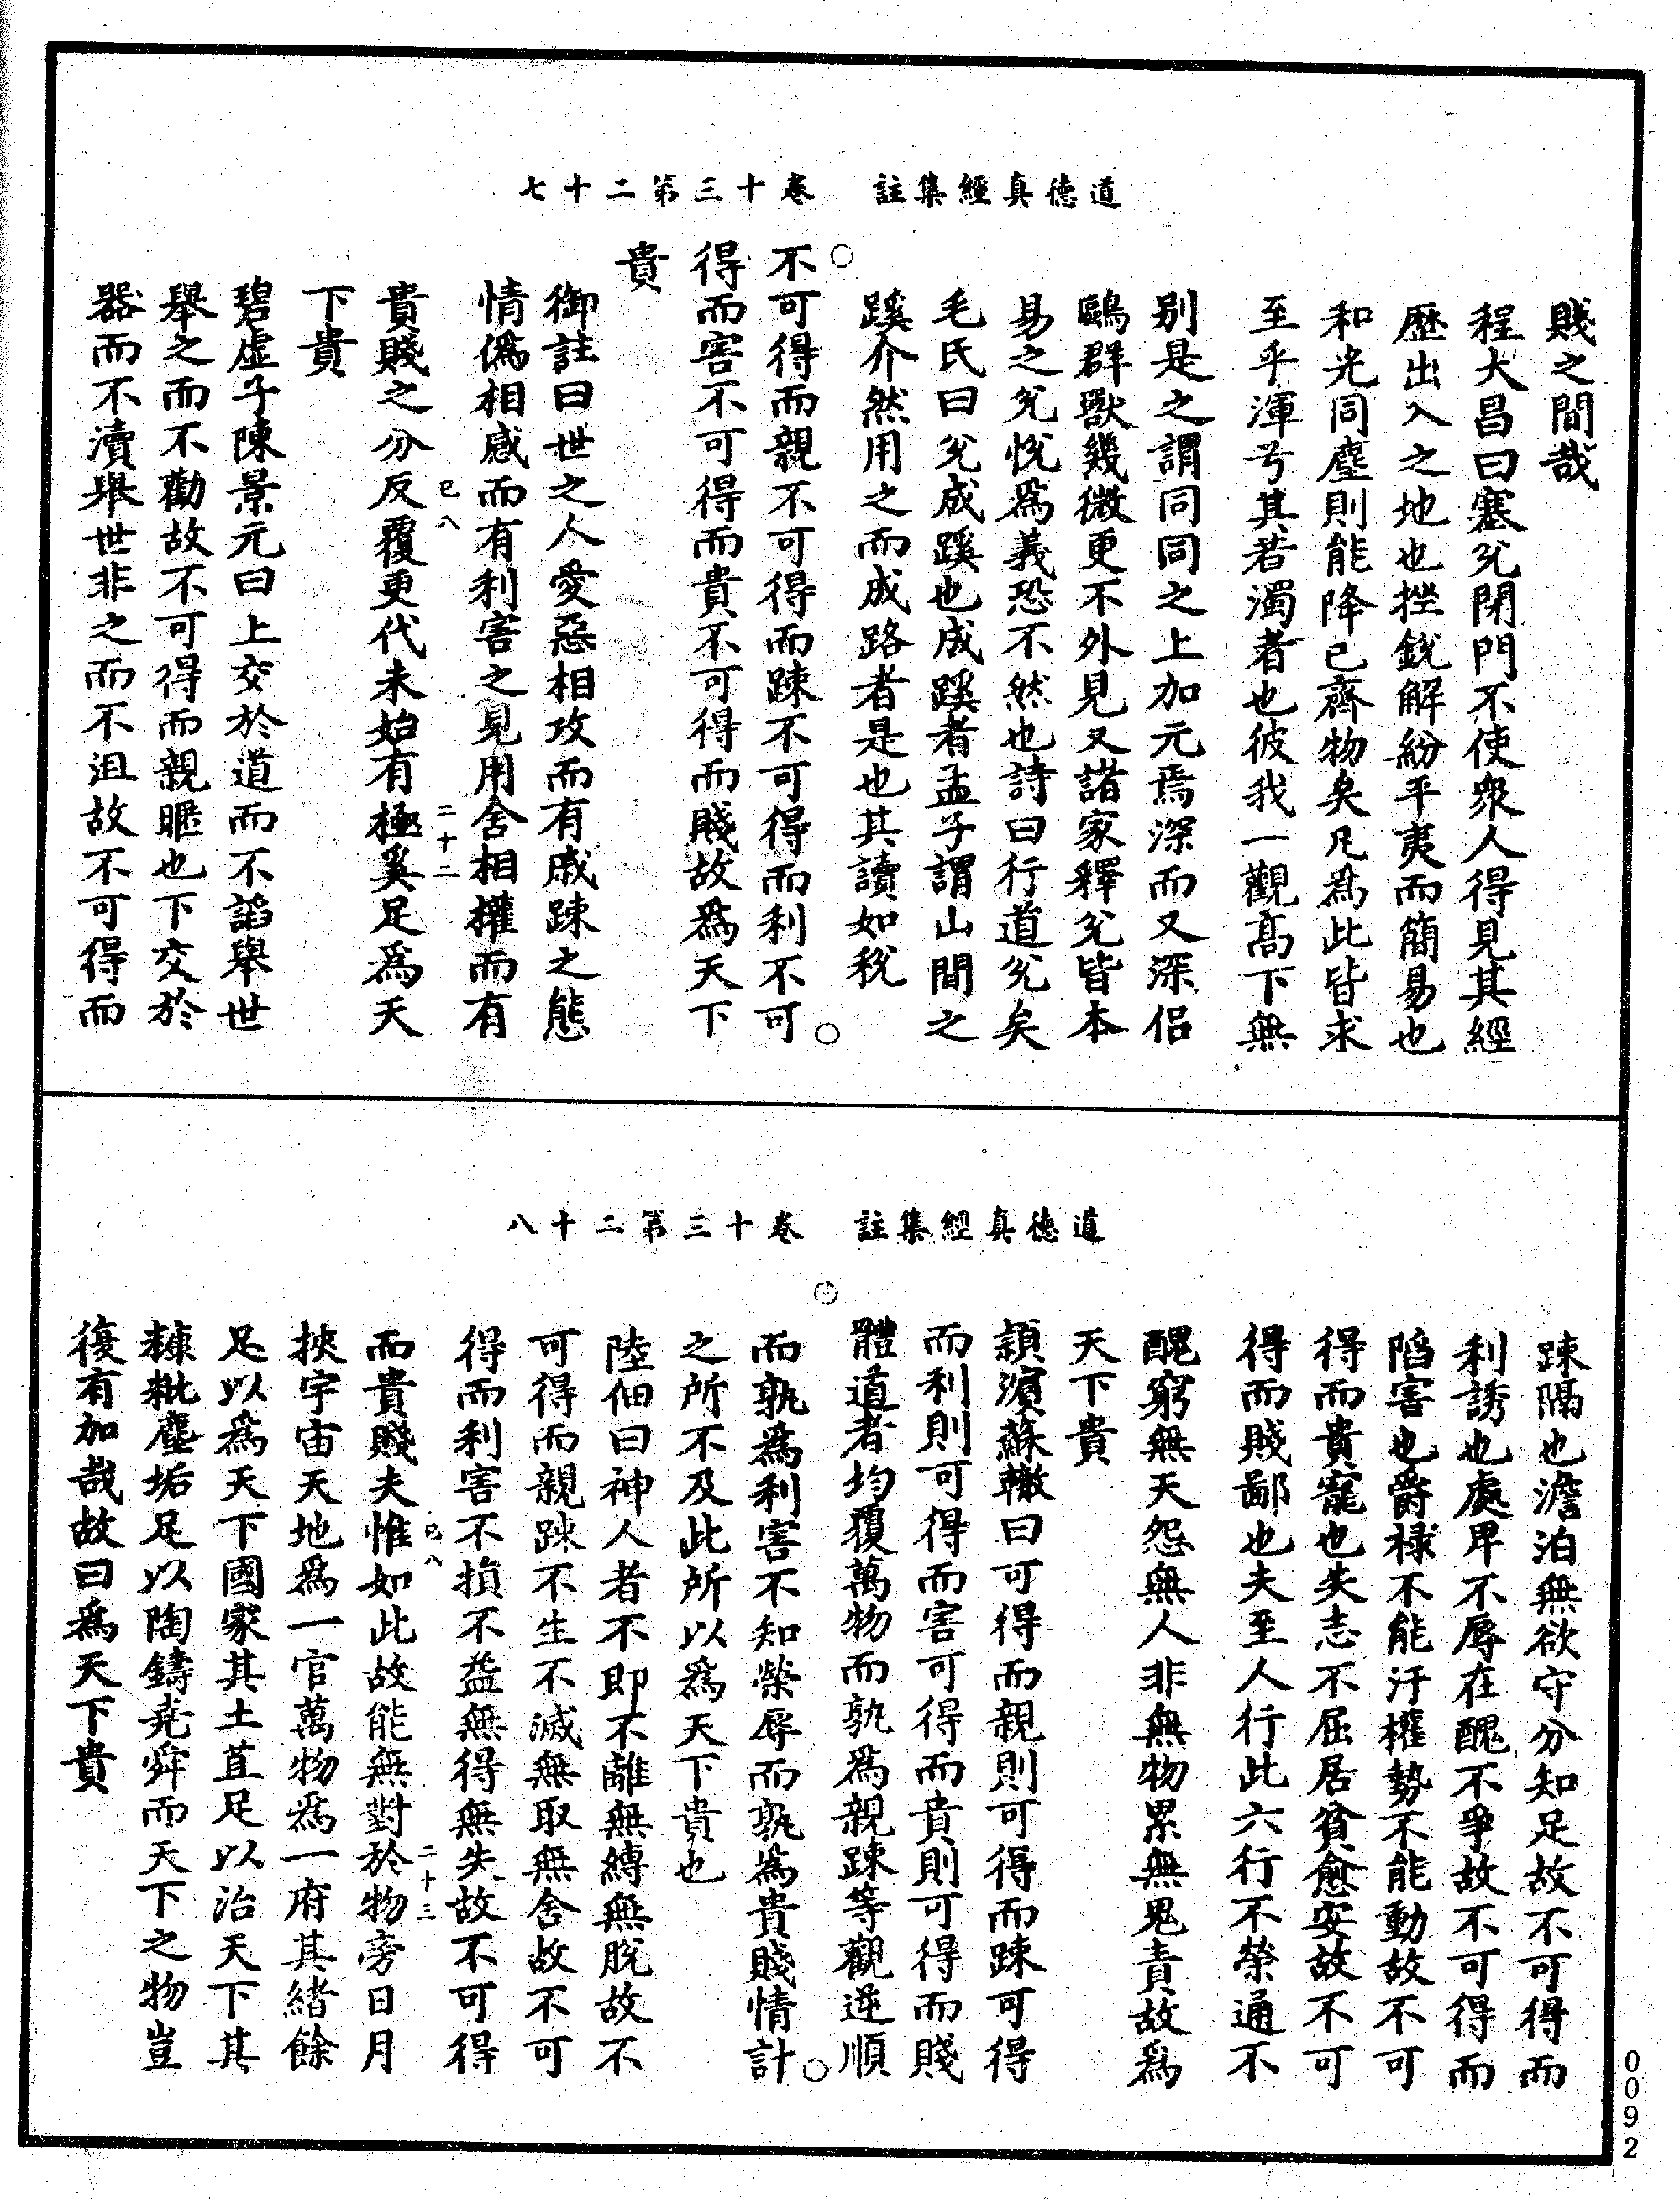 道德真經集註　卷十三第二十七
賤之間哉
程大昌曰塞兊閉門不使衆人得見其經
歷出入之地也挫銳解紛平夷而簡易也
和光同塵則能降已齊物矣凡爲此皆求
至乎渾兮其若濁者也彼我一觀髙下無
别是之謂同同之上加元焉深而又深侣
鷗群獸幾微更不外見又諸家釋兊皆本
易之兊悅爲義恐不然也詩曰行道兊矣
毛氏曰兊成蹊也成蹊者孟子謂山間之
蹊介然用之而成路者是也其讀如稅
不可得而親不可得而踈不可得而利不可
得而害不可得而貴不可得而賤故爲天下
貴
御註曰世之人愛惡相攻而有戚踈之態
情僞相感而有利害之見用舍相權而有
貴賤之分反覆更代未始有極奚足爲天
已八　二十二
下貴
碧虛子陳景元曰上交於道而不諂舉世
舉之而不勸故不可得而親暱也下交於
器而不瀆舉世非之而不沮故不可得而
道德真經集註　卷十三第二十八
踈隔也澹泊無欲守分知足故不可得而
利誘也處卑不辱在醜不爭故不可得而
陷害也爵祿不能汙權勢不能動故不可
得而貴寵也失志不屈居貧愈安故不可
得而賤鄙也夫至人行此六行不榮通不
醜窮無天怨無人非無物累無鬼責故爲
天下貴
頴濵蘇轍曰可得而親則可得而踈可得
而利則可得而害可得而貴則可得而賤
體道者均覆萬物而孰爲親踈等觀逆順
而孰爲利害不知榮辱而孰爲貴賤情計
之所不及此所以爲天下貴也
陸佃曰神人者不即不離無縛無脫故不
可得而親踈不生不滅無取無舍故不可
得而利害不損不益無得無失故不可得
而貴賤夫惟如此故能無對於物旁日月
已八　二十三
挾宇宙天地爲一官萬物爲一府其緒餘
足以爲天下國家其土苴足以治天下其
糠粃塵垢足以陶鑄堯舜而天下之物豈
復有加哉故曰爲天下貴
0092